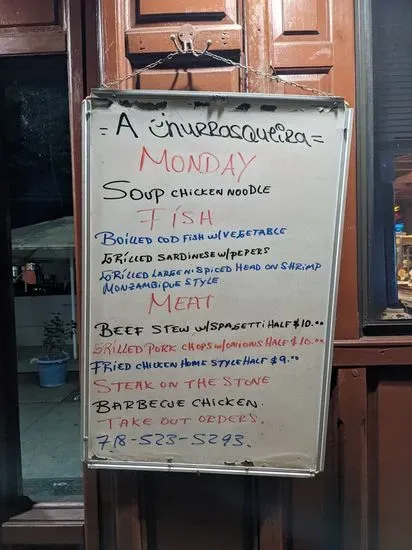 = A Churrasqueira =
MONDAY
SOUP CHICKEN NOODLE
FISH
BOILLED COD FISH W/VEGETABLE
GRILLED SARDINESE W/PEPERS
GRILLED LARGE N. SPICED HEAD ON SHRIMP
MONZAMBIQUE STYLE
MEAT
BEEF STEW W/SPAGETTI HALF $10.00
GRILLED PORK CHOPS W/ONIONS HALF $10.00
FRIED CHICKEN HOME STYLE HALF $9.00
STEAK ON THE STONE
BARBECUE CHICKEN.
TAKE OUT ORDERS.
718-523-5293.